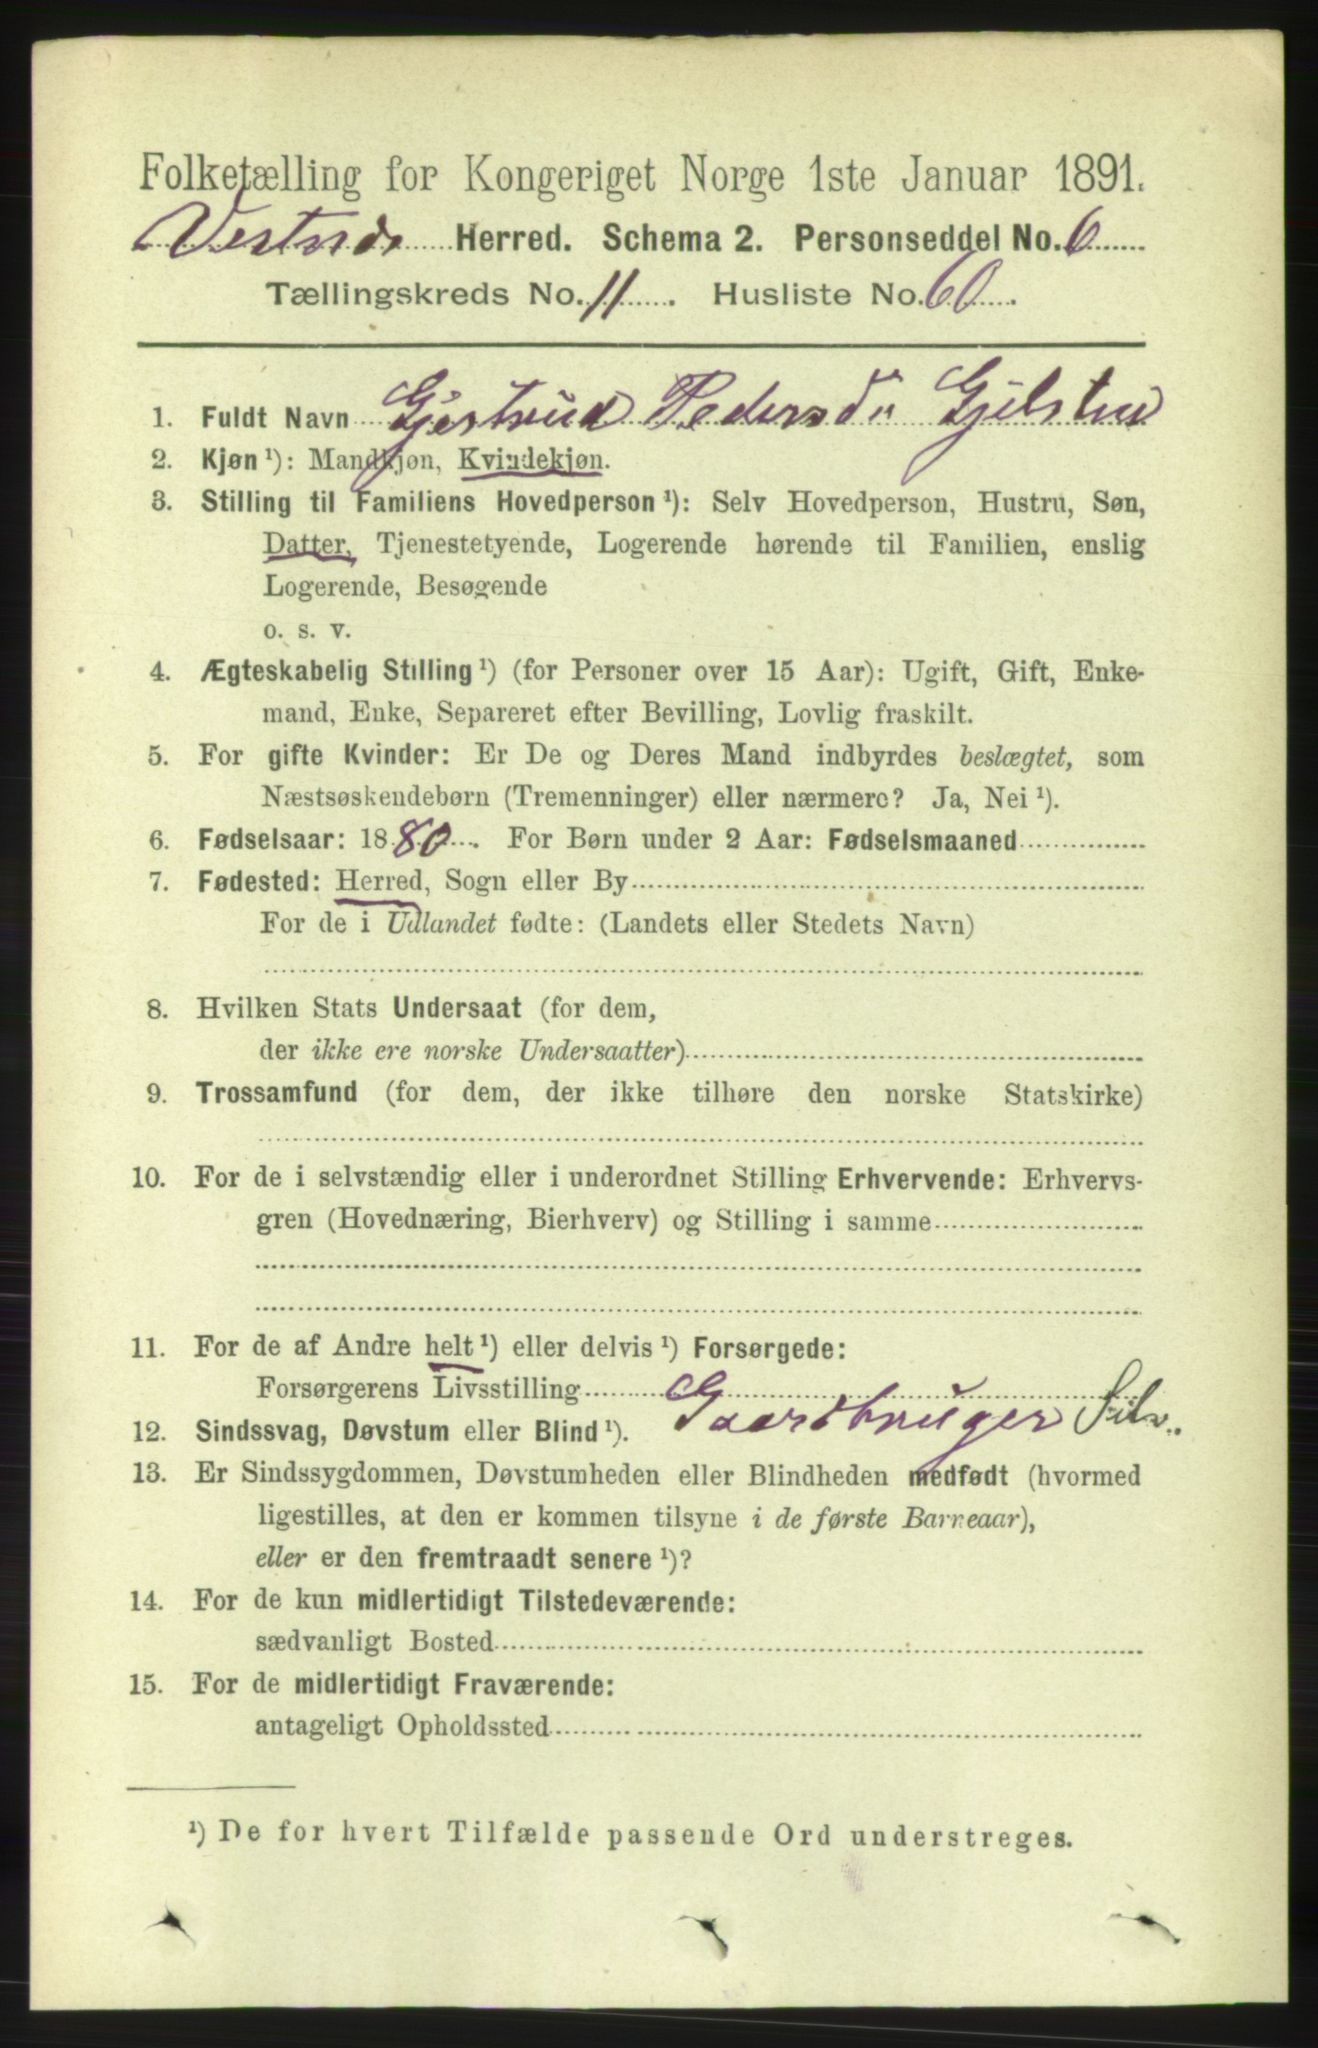 Folketælling for Kongeriget Norge 1ste Januar 1891.
Vestnes Herred. Schema 2. Personseddel No. 6
Tællingskreds No. 11. Husliste No. 60.
1. Fuldt Navn Gjertrud Pedersdtr Gjelsten
2. Kjøn ¹): Mandkjøn, Kvindekjøn.
3. Stilling til Familiens Hovedperson ¹): Selv Hovedperson, Hustru, Søn,
Datter, Tjenestetyende, Logerende hørende til Familien, enslig
Logerende, Besøgende
o. s. v.
4. Ægteskabelig Stilling ¹) (for Personer over 15 Aar): Ugift, Gift, Enke-
mand, Enke, Separeret efter Bevilling, Lovlig fraskilt.
5. For gifte Kvinder: Er De og Deres Mand indbyrdes beslægtet, som
Næstsøskendebørn (Tremenninger) eller nærmere? Ja, Nei ¹).
6. Fødselsaar: 1880. For Børn under 2 Aar: Fødselsmaaned
7. Fødested: Herred, Sogn eller By
For de i Udlandet fødte: (Landets eller Stedets Navn)
8. Hvilken Stats Undersaat (for dem,
der ikke ere norske Undersaatter)
9. Trossamfund (for dem, der ikke tilhøre den norske Statskirke)
10. For de i selvstændig eller i underordnet Stilling Erhvervende: Erhvervs-
gren (Hovednæring, Bierhverv) og Stilling i samme
11. For de af Andre helt ¹) eller delvis ¹) Forsørgede:
Forsørgerens Livsstilling Gaardbruger Selv.
12. Sindssvag, Døvstum eller Blind ¹).
13. Er Sindssygdommen, Døvstumheden eller Blindheden medfødt (hvormed
ligestilles, at den er kommen tilsyne i de første Barneaar),
eller er den fremtraadt senere ¹)?
14. For de kun midlertidigt Tilstedeværende:
sædvanligt Bosted
15. For de midlertidigt Fraværende:
antageligt Opholdssted
¹) De for hvert Tilfælde passende Ord understreges.